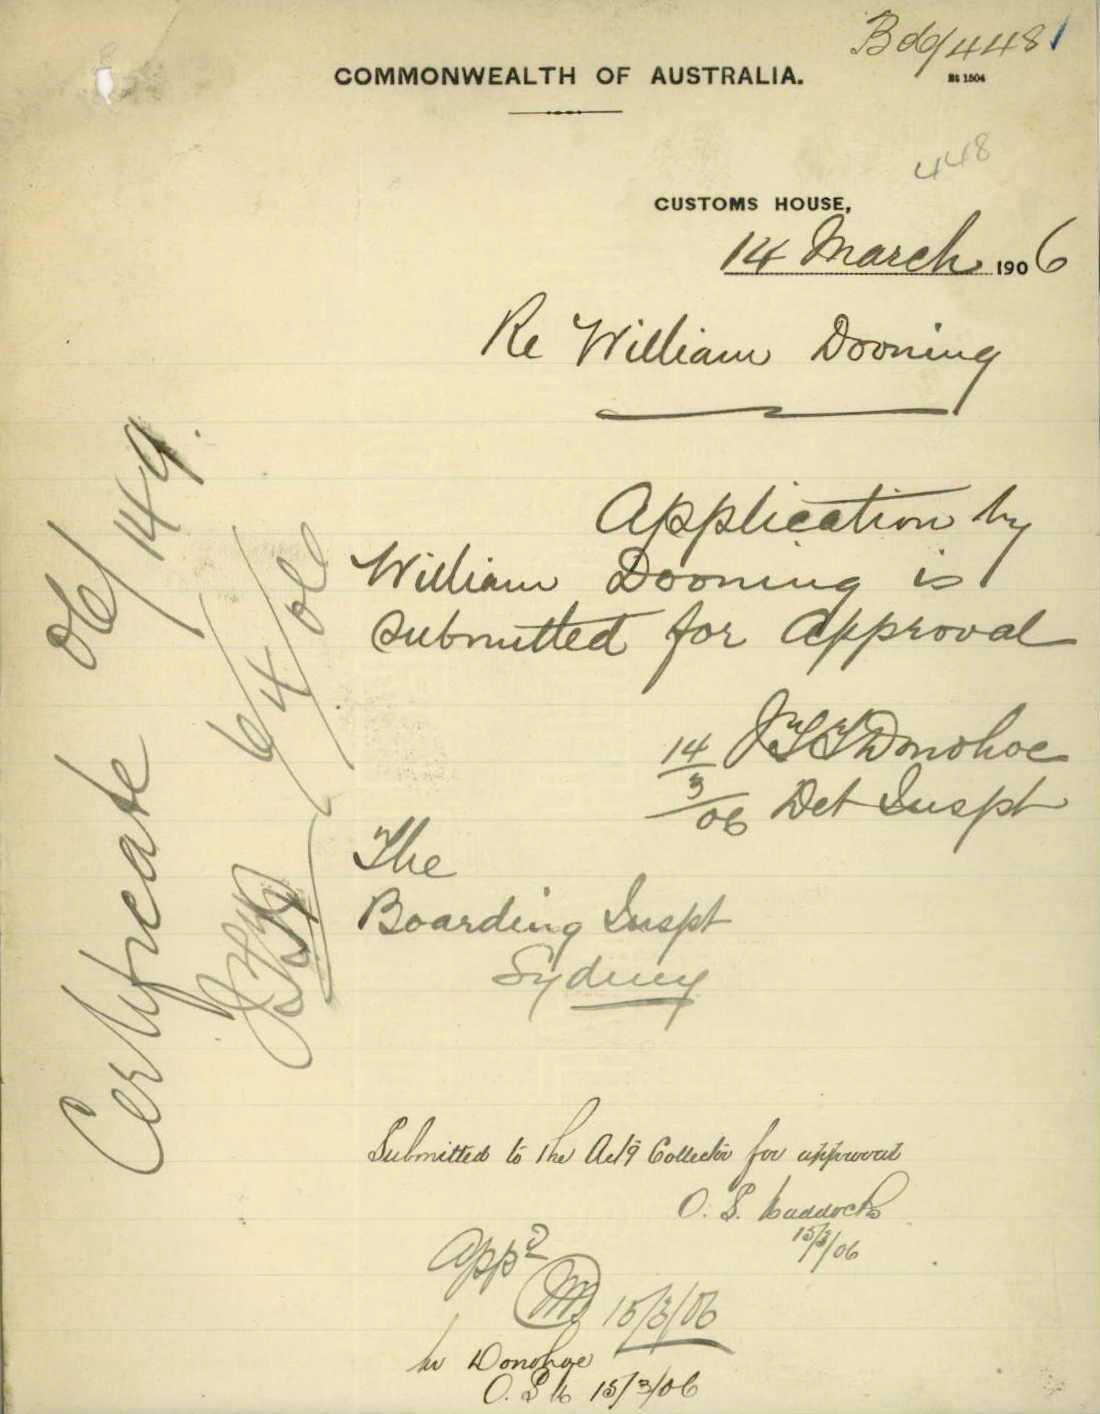 Bdg/4481
COMMONWEALTH OF AUSTRALIA.
448
CUSTOMS HOUSE,
14 March 1906
Re William Dooning
Application by
William Dooning is
submitted for Approval
14/3/06 Donohoe
Det Inspt
The
Boarding Inspt
Sydney
Certificate 06/149.
6/4/06
Submitted to the Actg Collector for approval
O. S. Maddocks
15/3/06
Appd
15/3/06
Mr Donohoe
O. S. M 15/3/06